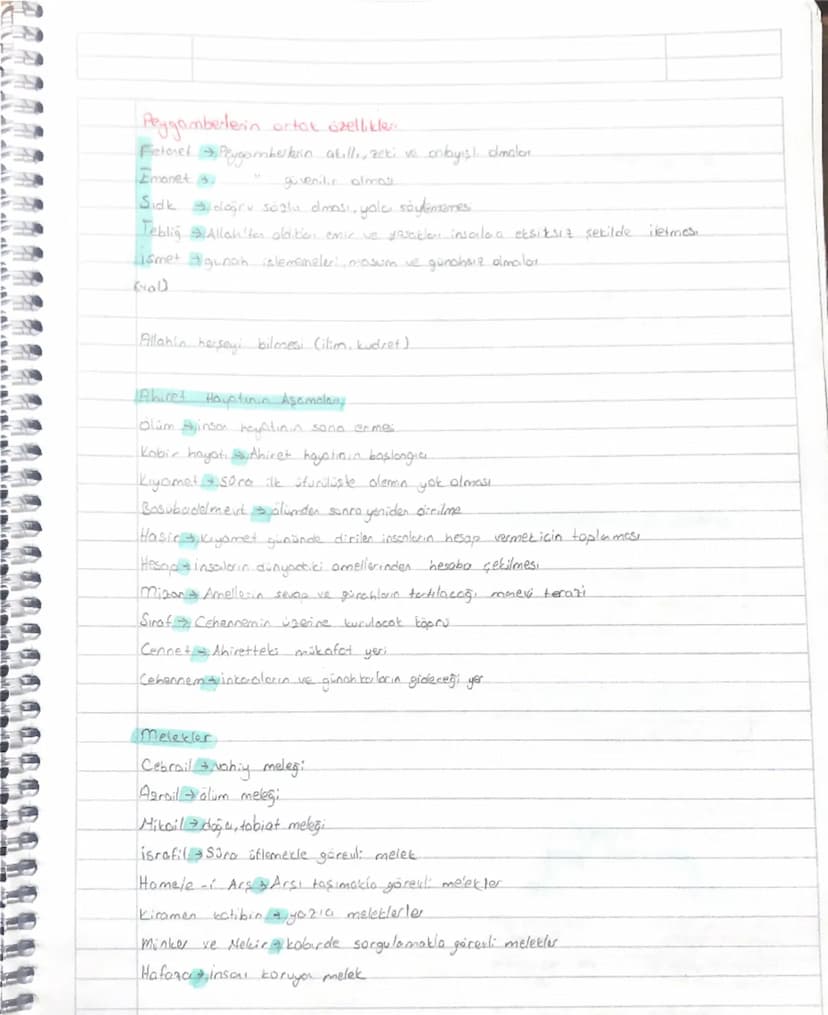 Peygamberlerin ortak özellikleri
Fetanet → Peygamberlerin akıllı, zeki ve anlayışlı olmaları
Emanet → " güvenilir olması
Sıdk → doğru sözlü olması, yalan söylememesi
Tebliğ → Allah'tan aldıkları emir ve yasakları insanlara eksiksiz şekilde iletmesi
ismet → günah işlememeleri, masum ve günahsız olmaları
Allahin herşeyi bilmesi (ilim, kudret)
Ahiret Hayatının Aşamaları
Ölüm → insan hayatının sona ermesi
Kabir hayatı → Ahiret hayatının başlangıcı
Kıyamet → Sûra ilk üfürülüşle alemin yok olması
Basubadelmevt → ölümden sonra yeniden dirilme
Haşir → Kıyamet gününde dirilen insanların hesap vermek için toplanması
Hesap → insanların dünyadaki amellerinden hesaba çekilmesi
Mizan → Amellerin sevap ve günahların tartılacağı manevi terazi
Sırat → Cehennemin üzerine kurulacak köprü
Cennet → Ahiretteki mükafat yeri
Cehennem → inkarcıların ve günahkarların gideceği yer
Melekler
Cebrail → vahiy meleği
Azrail → ölüm meleği
Mikail → doğa, tabiat meleği
israfil → Sûra üflemekle görevli melek
Hamele-i Arş → Arşı taşımakla görevli melekler
Kiramen katibin → yazıcı meleklerler
Minker ve Nekir → kabirde sorgulamakla görevli melekler
Hafaza → insanı koruyan melek